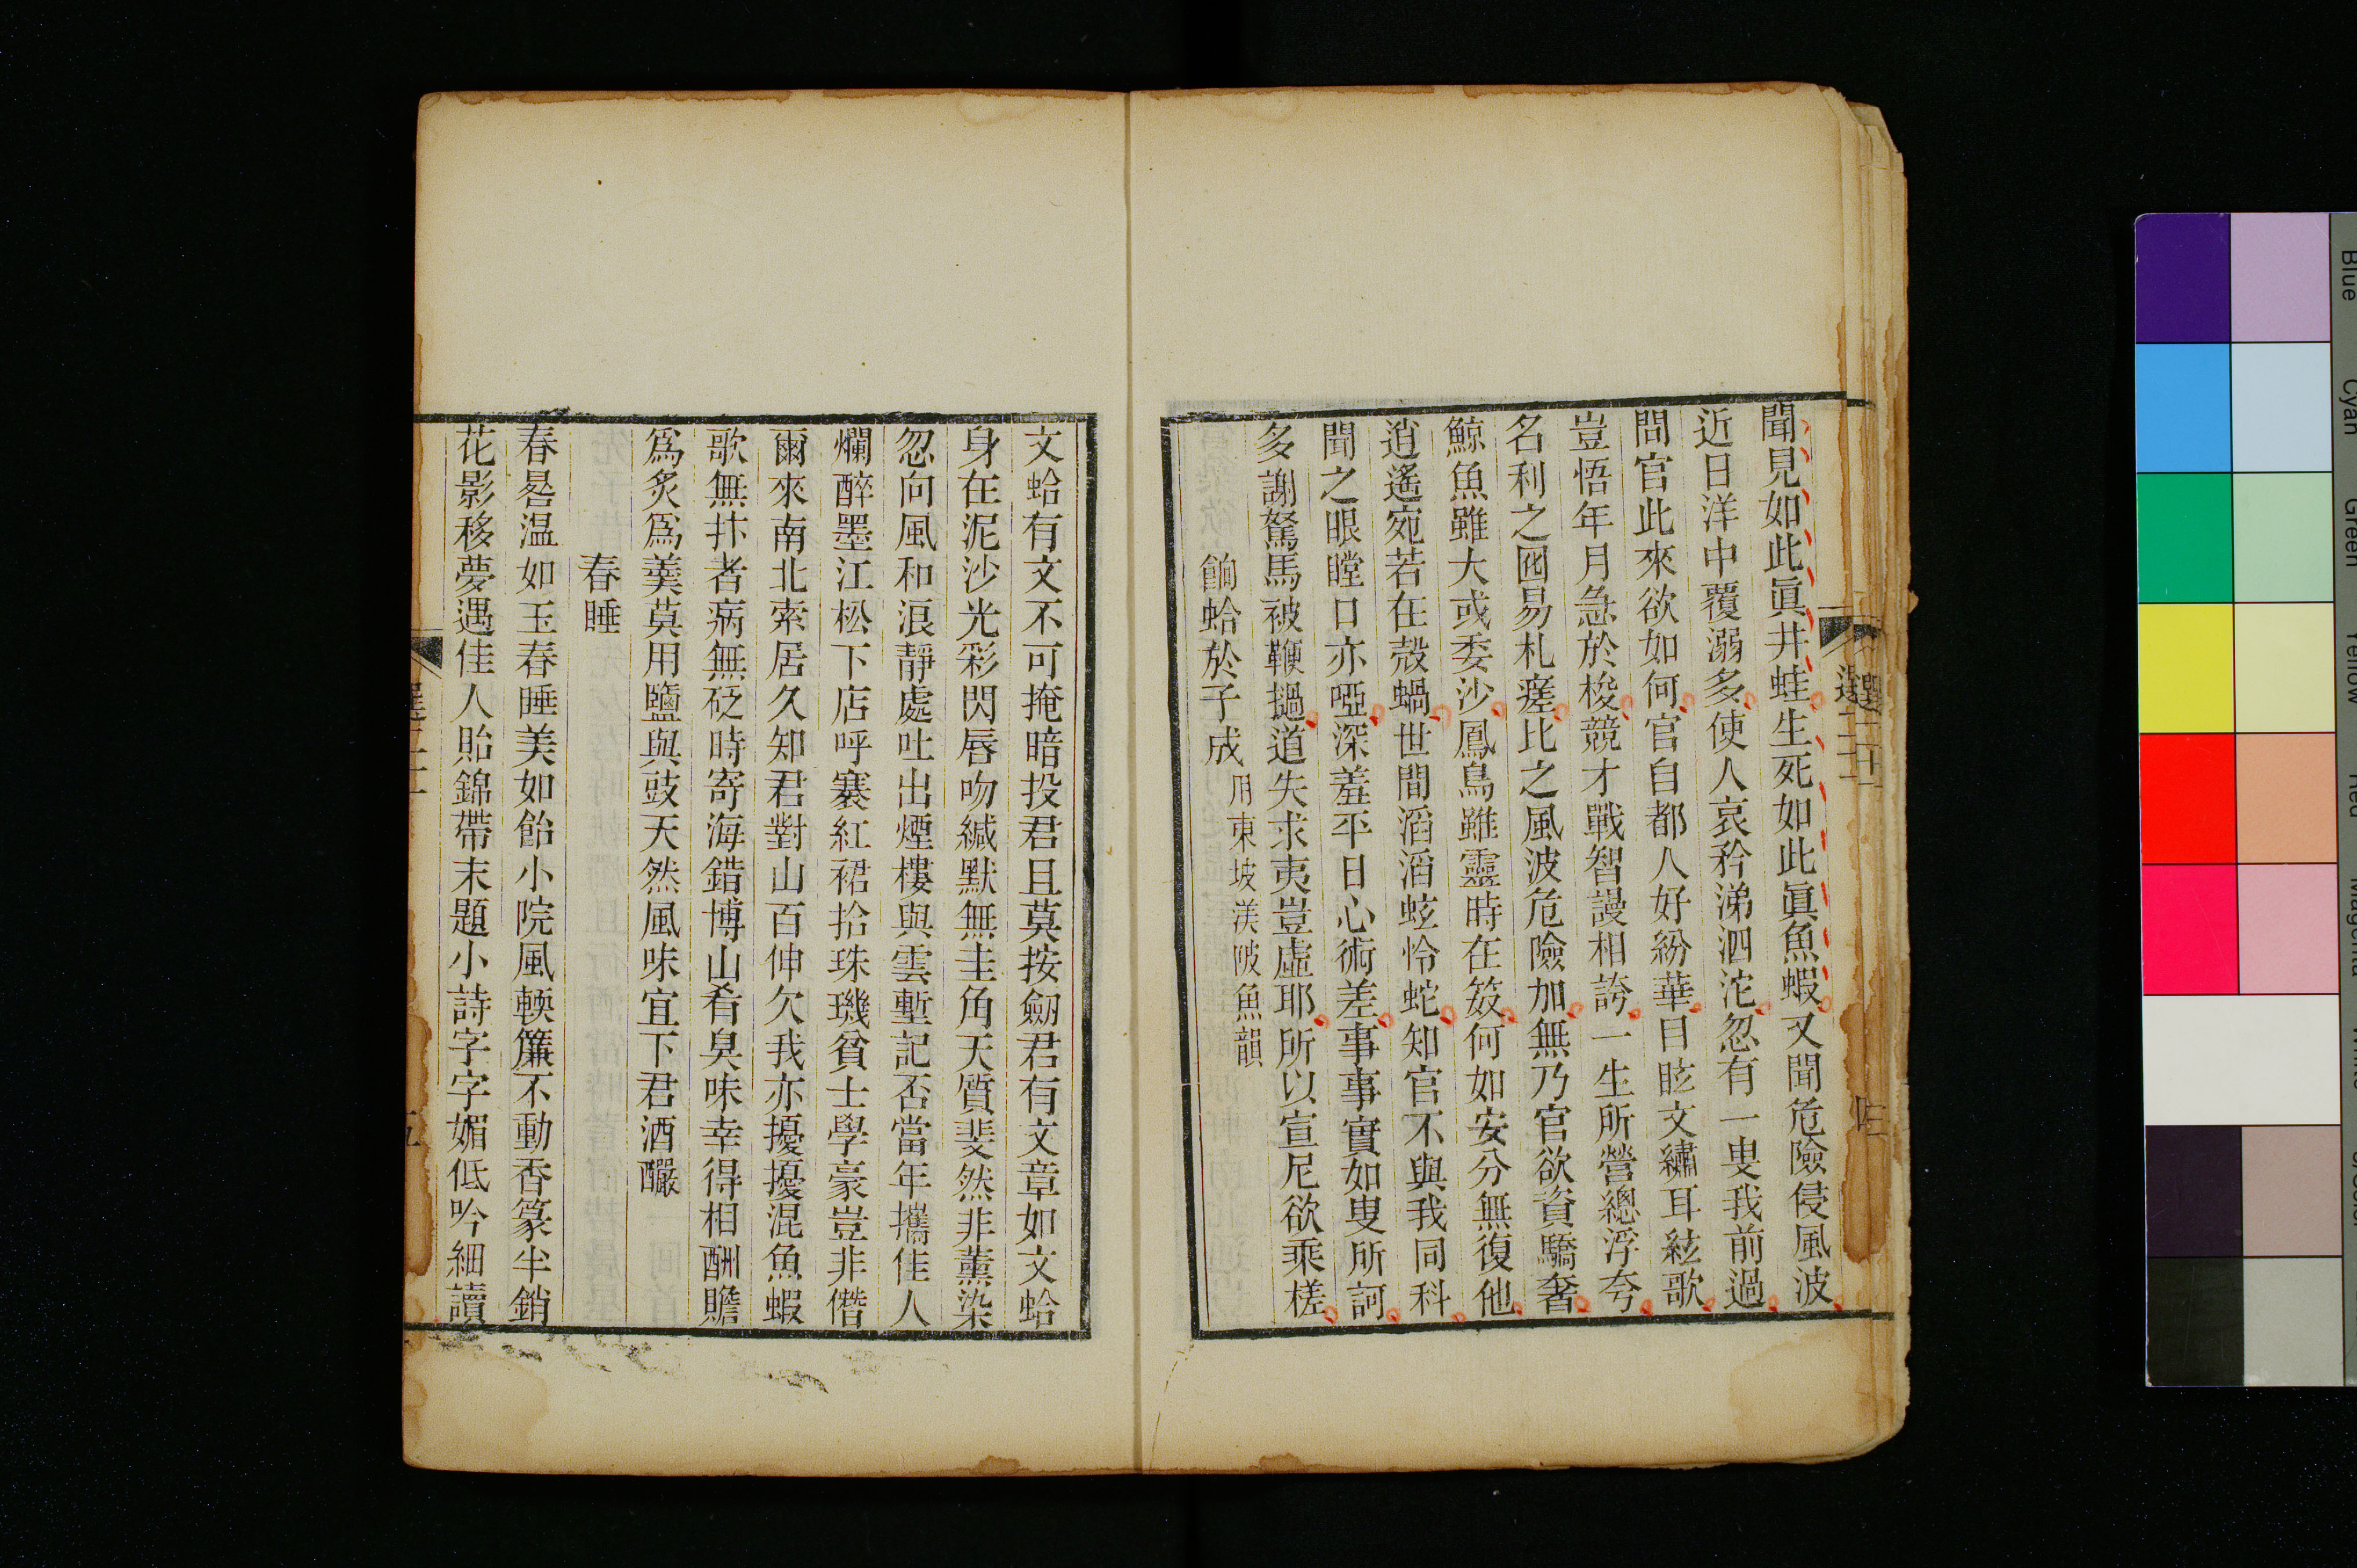 聞見如此眞井蛙生死如此眞魚蝦又聞危險侵風波
近日洋中覆溺多使人哀矜涕泗沱忽有一叟我前過
問官此來欲如何官自都人好紛華目眩文繡耳絃歌
豈悟年月急於梭競才戰智謾相誇一生所營總浮夸
名利之囮易札瘥比之風波危險加無乃官欲資驕奢
鯨魚雖大或委沙鳳鳥雖靈時在笯何如安分無復他
逍遙宛若在殼蝸世間滔滔蚿怜蛇知官不與我同科
聞之眼瞠口亦啞深羞平日心術差事事實如叟所訶
多謝駑馬被鞭撾道失求夷豈虛耶所以宣尼欲乘槎
餉蛤於子成用東坡渼陂魚韻
文蛤有文不可掩暗投君且莫按劒君有文章如文蛤
身在泥沙光彩閃唇吻緘默無圭角天質斐然非薰染
忽向風和浪靜處吐出煙樓與雲塹記否當年攜佳人
爛醉墨江松下店呼褰紅裙拾珠璣貧士學豪豈非僭
爾來南北索居久知君對山百伸欠我亦擾擾混魚蝦
歌無抃者病無砭時寄海錯博山肴臭味幸得相酬贍
爲炙爲羹莫用鹽與豉天然風味宜下君酒釅
春睡
春晷温如玉春睡美如飴小院風輭簾不動香篆半銷
花影移夢遇佳人貽錦帶末題小詩字字媚低吟細讀